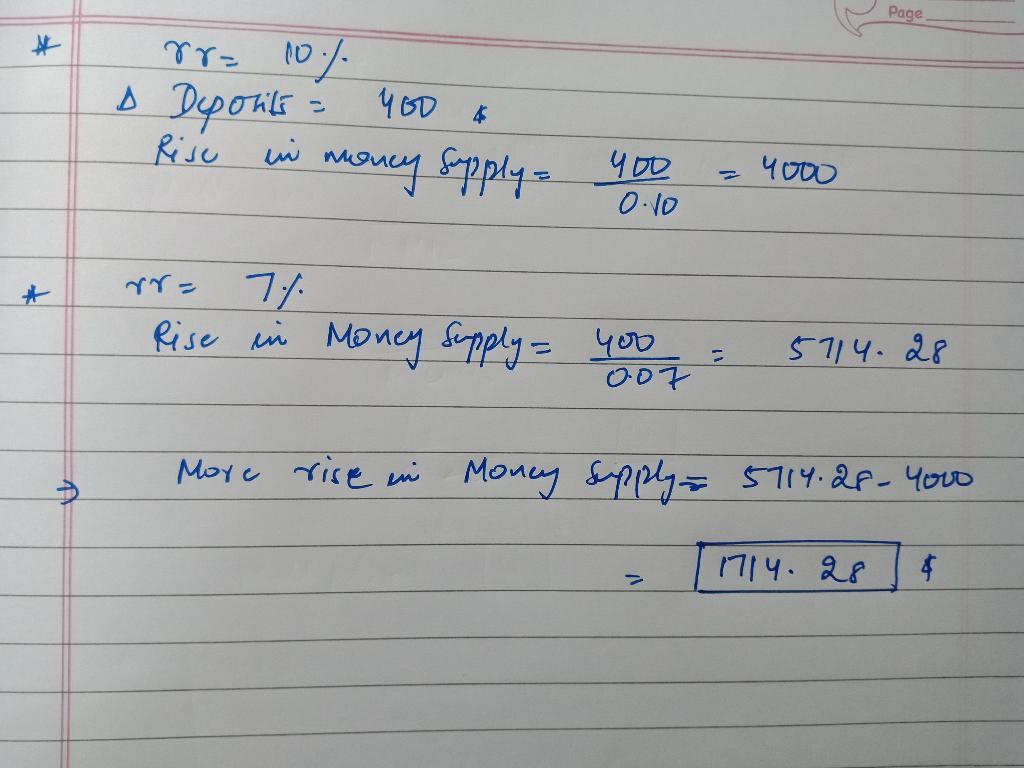 Page
* rr = 10%
Δ Deposits = 400 $
Rise in money Supply = 400/0.10 = 4000
* rr = 7%
Rise in Money Supply = 400/0.07 = 5714.28
⇒ More rise in Money Supply = 5714.28 - 4000
= 1714.28 $